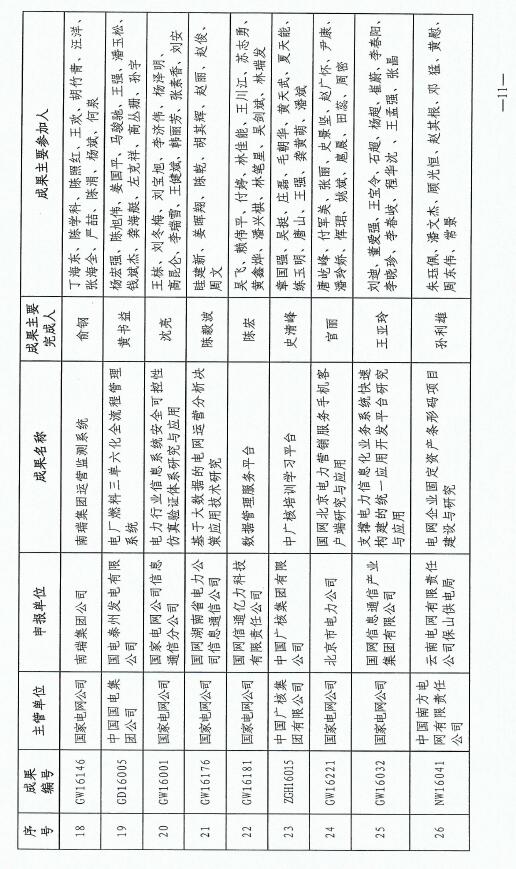 序号
成果编号
主管单位
申报单位
成果名称
成果主要完成人
成果主要参加人
18
GW16146
国家电网公司
南瑞集团公司
南瑞集团运营监测系统
俞钢
丁海东、陈学科、陈照红、王欢、胡竹青、汪洋、
张海全、严浩、陈涓、杨斌、何泉
19
GD16005
中国国电集
团公司
国电泰州发电有限
公司
电厂燃料三单六化全流程管理
系统
黄书益
杨宏强、陈旭伟、姜国平、马骏驰、王强、潘玉松、
钱斌杰、龚海艇、左克祥、高丛珊、孙宇
20
GW16001
国家电网公司
国家电网公司信息
通信分公司
电力行业信息系统安全可控性
仿真验证体系研究与应用
沈亮
王栋、刘冬梅、刘宝旭、李济伟、杨泽明、
高昆仑、李瑞雪、王健斌、韩丽芳、张素香、刘安
21
GW16176
国家电网公司
国网湖南省电力公
司信息通信公司
基于大数据的电网运营分析决
策应用技术研究
陈毅波
眭建新、姜晖翔、陈乾、胡其辉、赵丽、赵俊、
周文
22
GW16181
国家电网公司
国网信通亿力科技
有限责任公司
数据管理服务平台
陈宏
吴飞、赖伟平、付婷、林佳能、王川江、苏志勇、
黄鑫烨、潘兴棋、林笔星、吴剑斌、林瑞发
23
ZGH16015
中国广核集
团有限公司
中国广核集团有限
公司
中广核培训学习平台
史清峰
章国强、吴挺、庄磊、毛朝华、黄天武、夏天能、
练玉明、唐山、王强、龚黄朝、潘斌
24
GW16221
国家电网公司
北京市电力公司
国网北京电力营销服务手机客
户端研究与应用
官丽
唐屹峰、付军美、张丽、史景坚、赵广怀、尹康、
潘玲娇、恽珺、姚斌、扈晨、田蕊、周密
25
GW16032
国家电网公司
国网信息通信产业
集团有限公司
支撑电力信息化业务系统快速
构建的统一应用开发平台研究
与应用
王亚玲
刘迪、董爱强、王宝令、石超、杨超、崔蔚、李春阳、
李晓珍、李春岐、程华沈、、王孟强、张晶
26
NW16041
中国南方电
网有限责任
公司
云南电网有限责任
公司保山供电局
电网企业固定资产条形码项目
建设与研究
孙利雄
朱珏佩、潘文杰、顾光恒、赵其根、邓猛、黄慰、
周东伟、常景
—11—